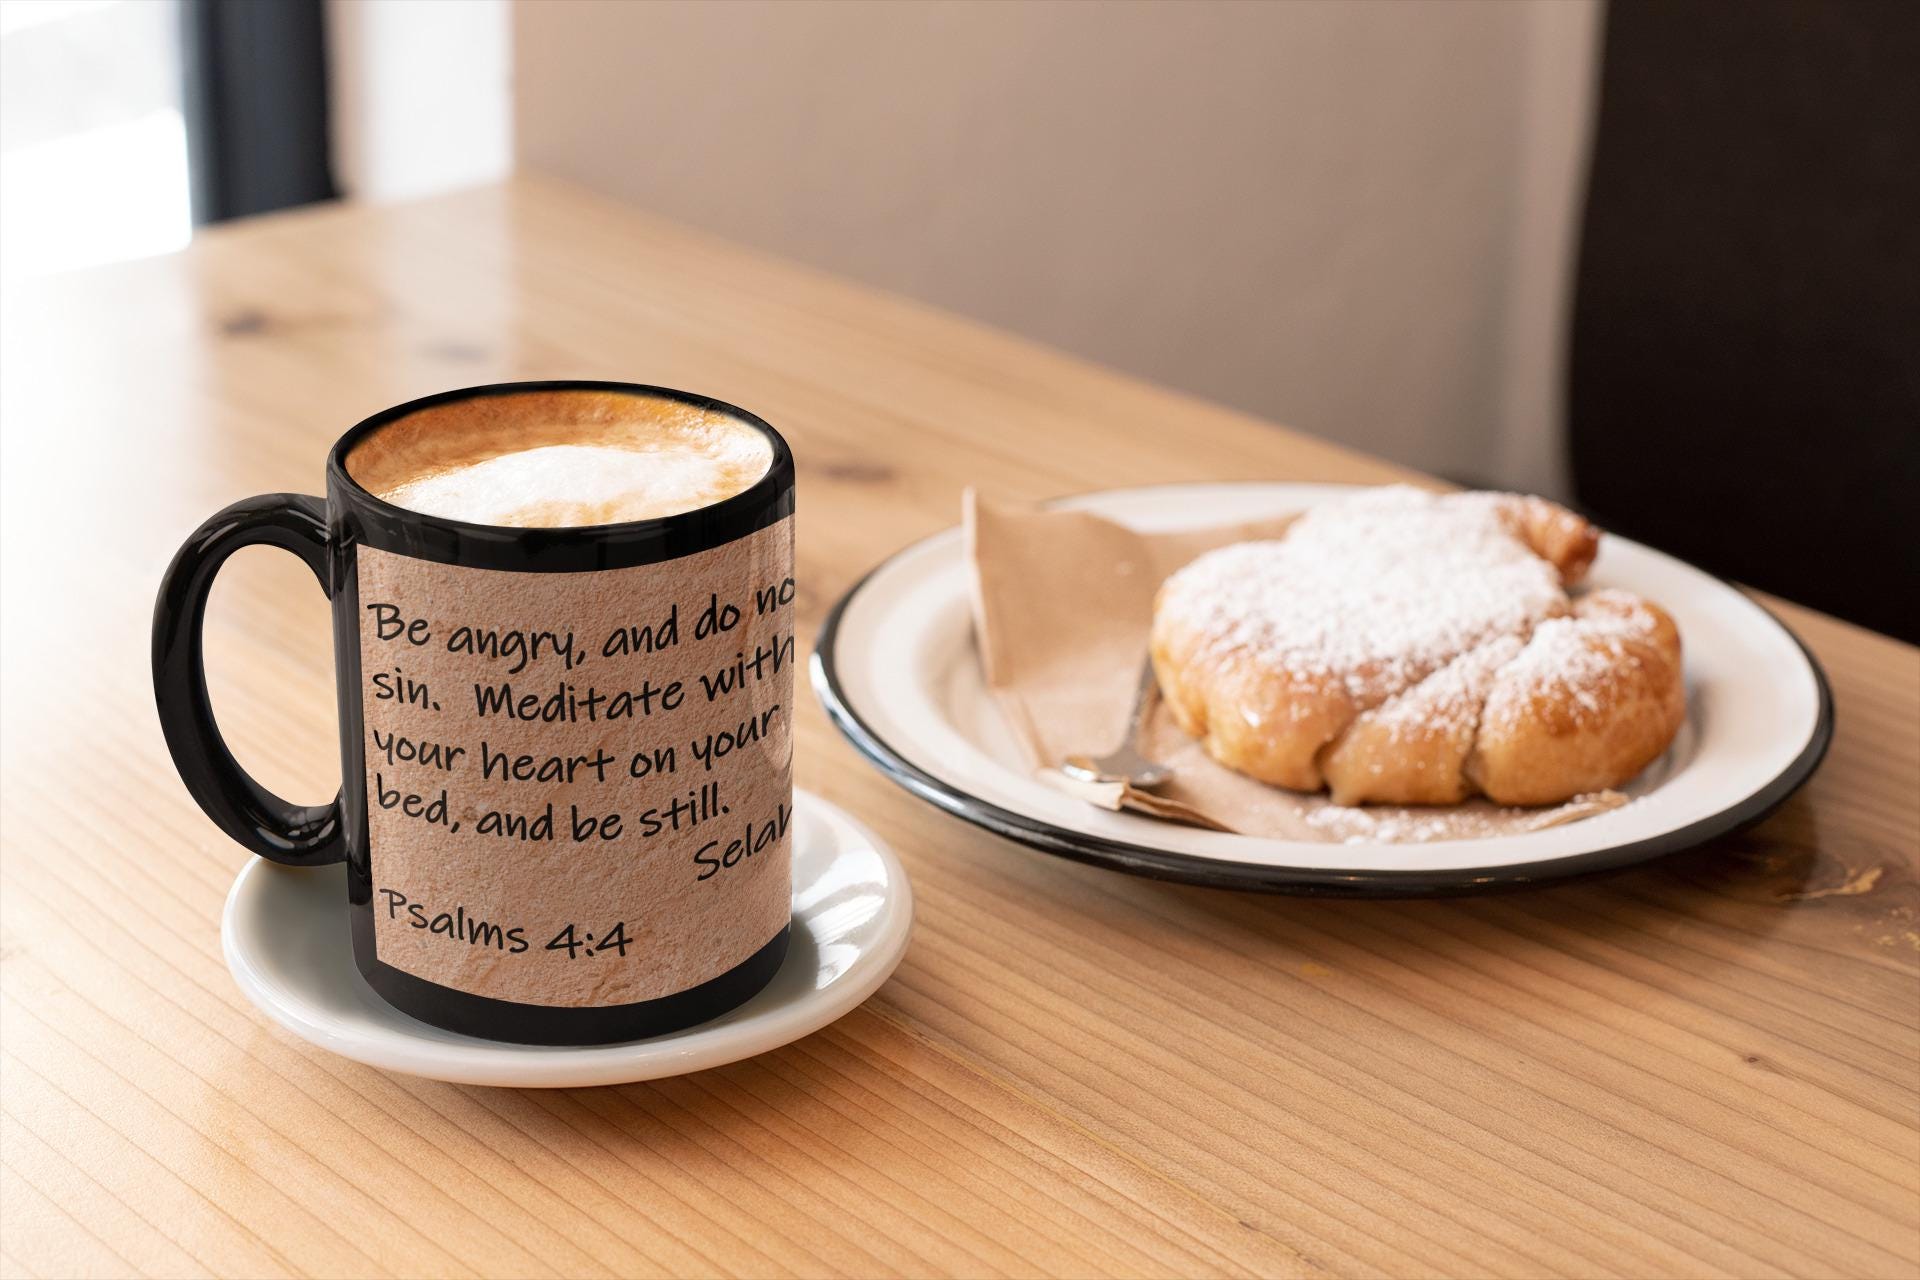 Be angry, and do no
sin. Meditate with
your heart on your
bed, and be still.
Selah
Psalms 4:4